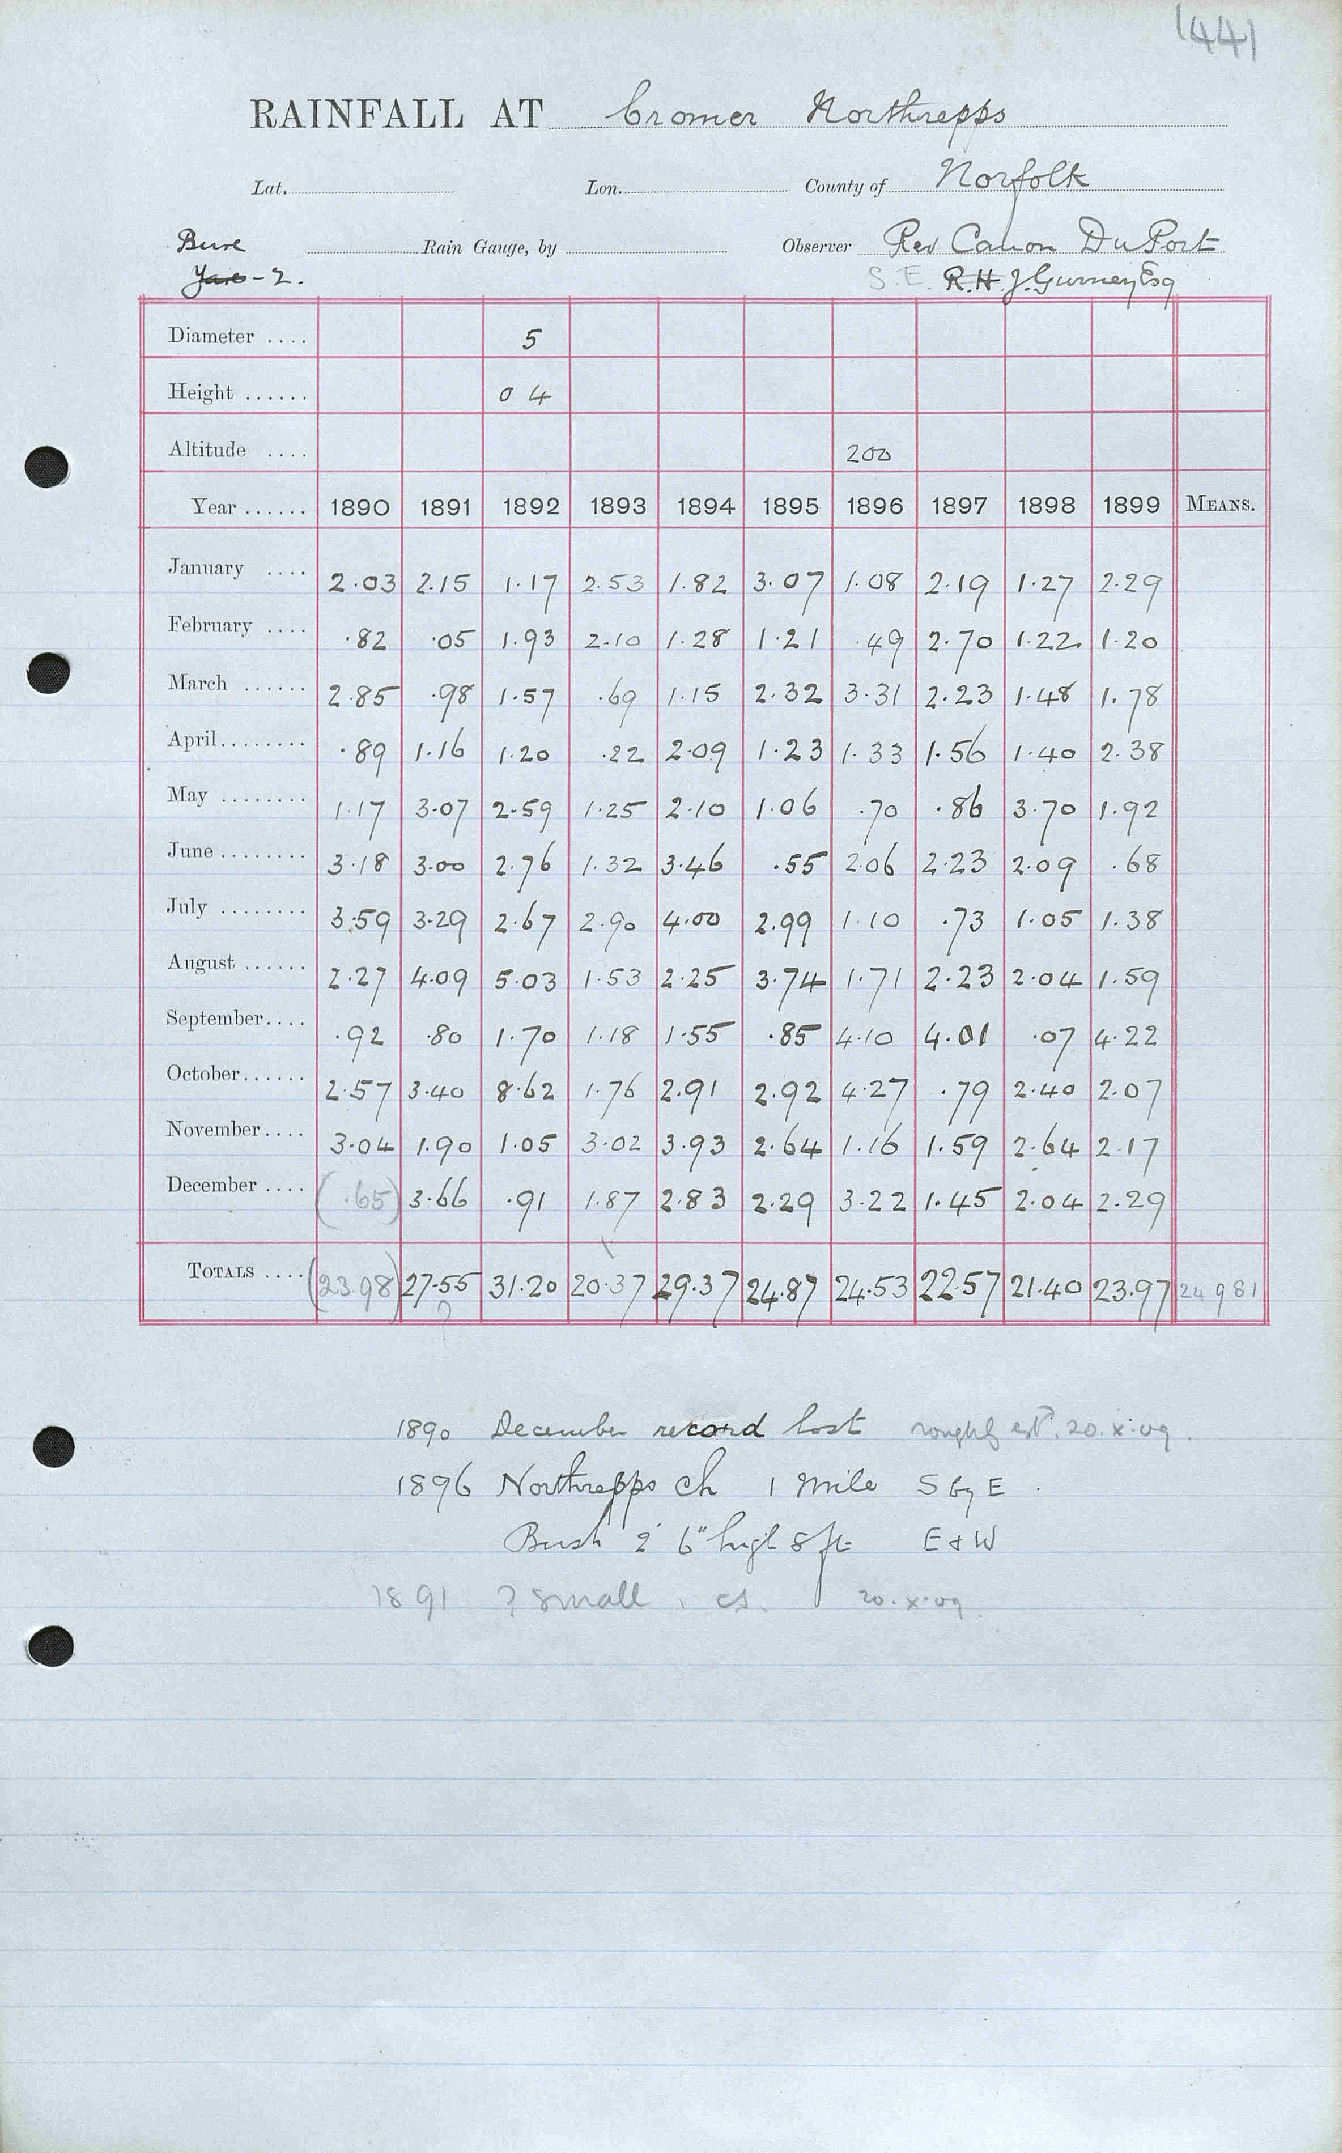 1441
RAINFALL AT Cromer Northrepps
Lat. Lon. County of Norfolk
Bure Rain Gauge, by Observer Rev Canon Du Port
Yare - 2. S.E. R.H.J. Gurney Esq
Diameter .... 5
Height ...... 0 4
Altitude .... 200
Year ...... 1890 1891 1892 1893 1894 1895 1896 1897 1898 1899 MEANS.
January .... 2.03 2.15 1.17 2.53 1.82 3.07 1.08 2.19 1.27 2.29
February .... .82 .05 1.93 2.10 1.28 1.21 .49 2.70 1.22 1.20
March ...... 2.85 .98 1.57 .69 1.15 2.32 3.31 2.23 1.48 1.78
April........ .89 1.16 1.20 .22 2.09 1.23 1.33 1.56 1.40 2.38
May ........ 1.17 3.07 2.59 1.25 2.10 1.06 .70 .86 3.70 1.92
June ........ 3.18 3.00 2.76 1.32 3.46 .55 2.06 2.23 2.09 .68
July ........ 3.59 3.29 2.67 2.90 4.00 2.99 1.10 .73 1.05 1.38
August ...... 2.27 4.09 5.03 1.53 2.25 3.74 1.71 2.23 2.04 1.59
September.... .92 .80 1.70 1.18 1.55 .85 4.10 4.01 .07 4.22
October...... 2.57 3.40 8.62 1.76 2.91 2.92 4.27 .79 2.40 2.07
November.... 3.04 1.90 1.05 3.02 3.93 2.64 1.16 1.59 2.64 2.17
December .... (.65) 3.66 .91 1.87 2.83 2.29 3.22 1.45 2.04 2.29
TOTALS .... (23.98) 27.55 31.20 20.37 29.37 24.87 24.53 22.57 21.40 23.97 24 981
?
1890 December record lost roughly est. 20.x.09.
1896 Northrepps Ch 1 Mile S by E
Bush 2' 6" high 8 ft E & W
1891 ? small . cs. 20.x.09.